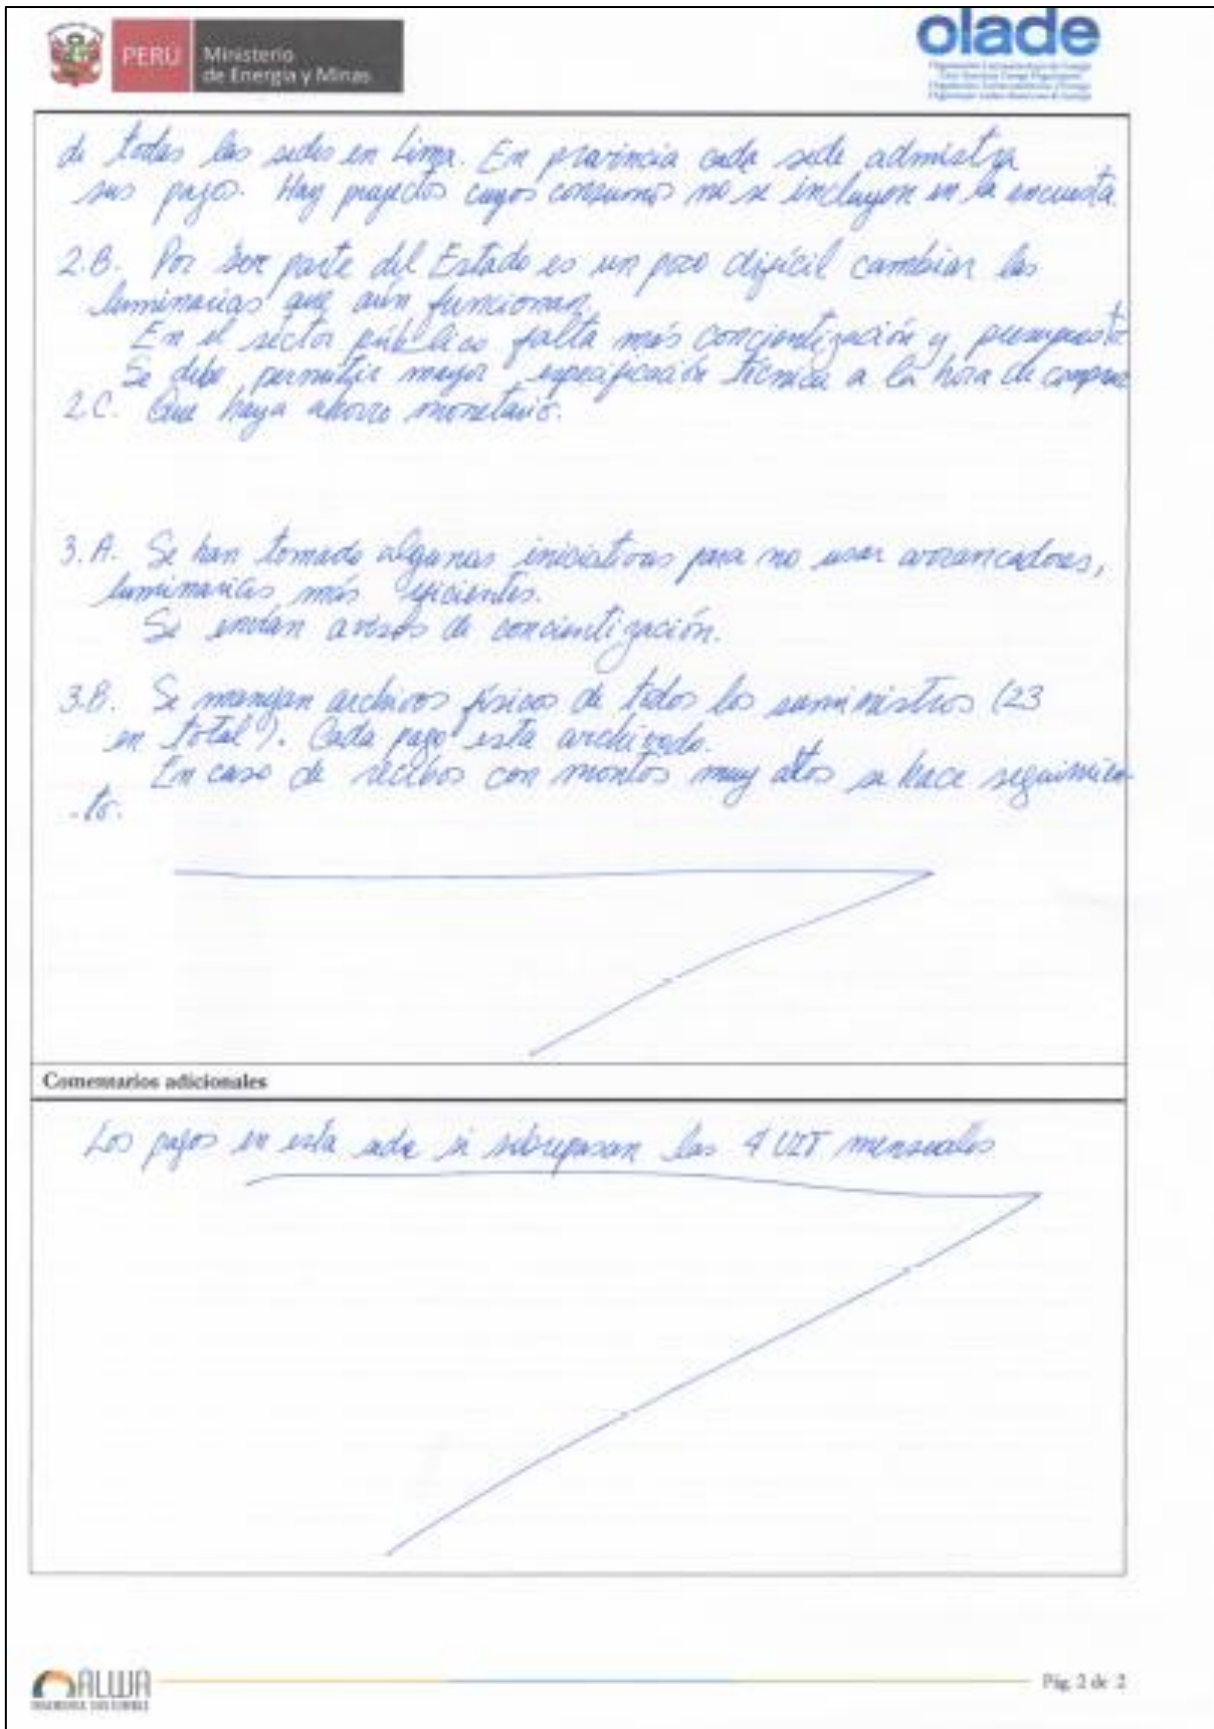 PERÚ
Ministerio
de Energía y Minas
olade
de todas las sedes en Lima. En provincia cada sede admistra
sus pagos. Hay proyectos cuyos consumos no se incluyen en la encuesta.
2.B. Por ser parte del Estado es un poco difícil cambiar las
luminarias que aún funcionan.
En el sector público falta más concientización y presupuesto
Se debe permitir mayor especificación técnica a la hora de comprar
2.C. Que haya ahorro monetario.
3.A. Se han tomado algunas iniciativas para no usar arrancadores,
luminarias más eficientes.
Se envían avisos de concientización.
3.B. Se manejan archivos físicos de todos los suministros (23
en total). Cada pago esta archivado.
En caso de recibos con montos muy altos se hace seguimien
-to.
Comentarios adicionales
Los pagos en esta sede si sobrepasan las 4 UIT mensuales
ALWA
Pág. 2 de 2